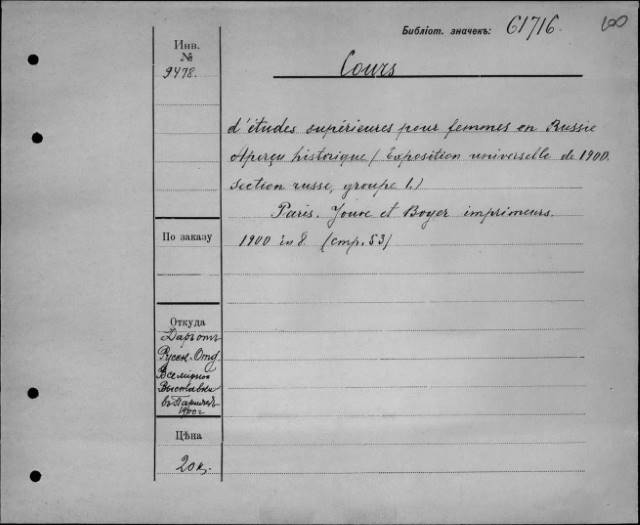 Библіот. значекъ: 61716.
100
Инв.
№
9478.
Cours
d'études supérieures pour femmes en Russie
Aperçu historique (Exposition universelle de 1900.
Section russe, groupe 1.)
Paris. Jouve et Boyer imprimeurs.
По заказу
1900 in 8. (стр. 53)
Откуда
Даръ отъ
Русск. Отд.
Всемірной
Выставки
въ Парижѣ
1900 г
Цѣна
20 к.